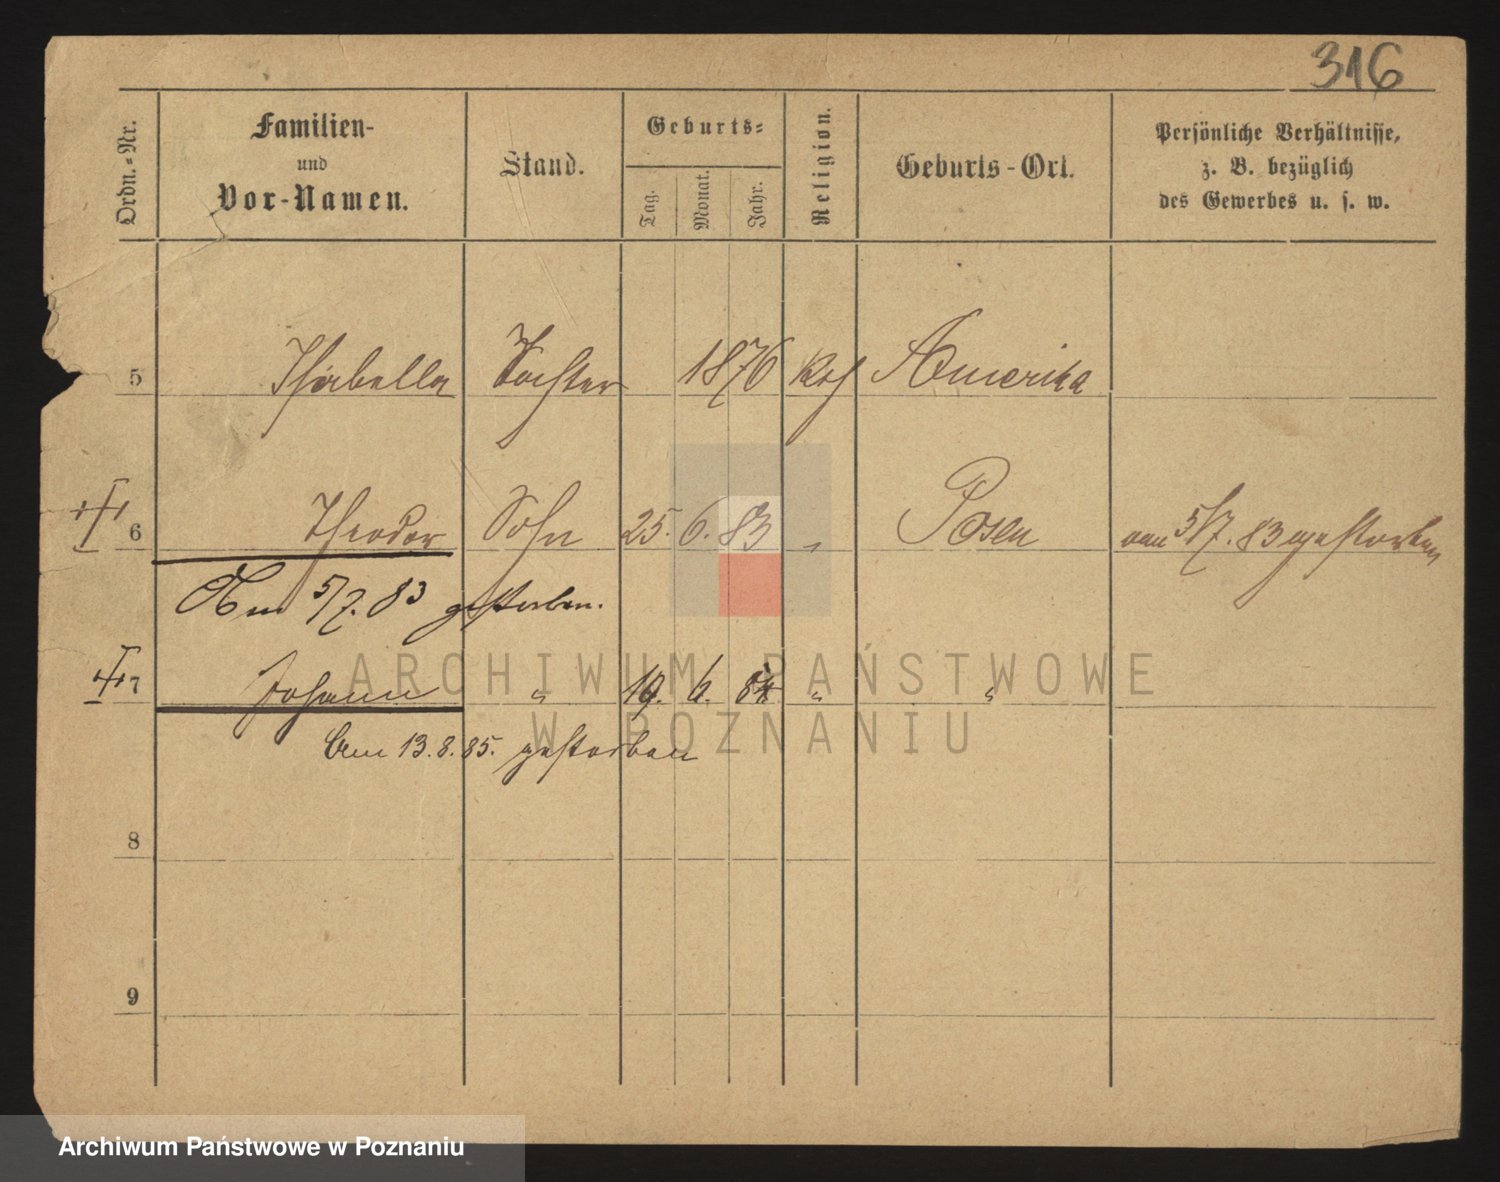 316
Ordn.-Nr.
Familien-
und
Vor-Namen.
Stand.
Geburts-
Tag.
Monat.
Jahr.
Religion.
Geburts-Ort.
Persönliche Verhältnisse,
z. B. bezüglich
des Gewerbes u. s. w.
5 Isabella Tochter 1876 kath Amerika
6 Theodor Sohn 25. 6. 83 " Posen am 5/7. 83 gestorben
Am 5/7. 83 gestorben.
7 Johann " 19. 6. 84 " "
Am 13.8.85. gestorben
8
9
ARCHIWUM PAŃSTWOWE
W POZNANIU
Archiwum Państwowe w Poznaniu